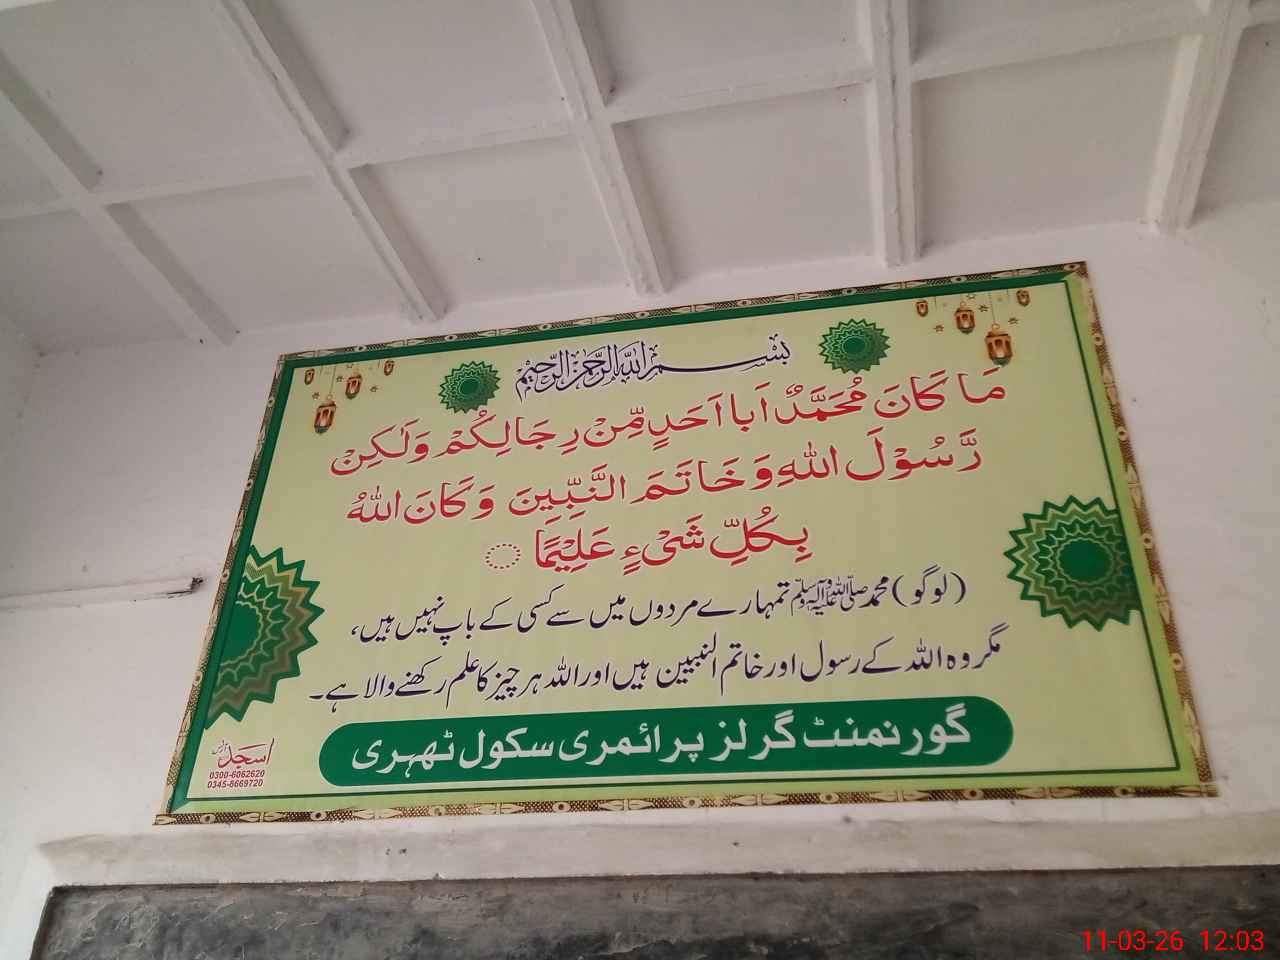 بسم الله الرحمن الرحيم
مَا كَانَ مُحَمَّدٌ اَبَا اَحَدٍ مِّنْ رِجَالِكُمْ وَلٰكِنْ
رَّسُوْلَ اللهِ وَخَاتَمَ النَّبِّيِنَ وَكَانَ اللهُ
بِكُلِّ شَیْءٍ عَلِيْمًا
(لوگو) محمد ﷺ تمہارے مردوں میں سے کسی کے باپ نہیں ہیں،
مگر وہ اللہ کے رسول اور خاتم النبیین ہیں اور اللہ ہر چیز کا علم رکھنے والا ہے۔
گورنمنٹ گرلز پرائمری سکول ٹھہری
اسجد
0300-6062620
0345-8669720
11-03-26 12:03